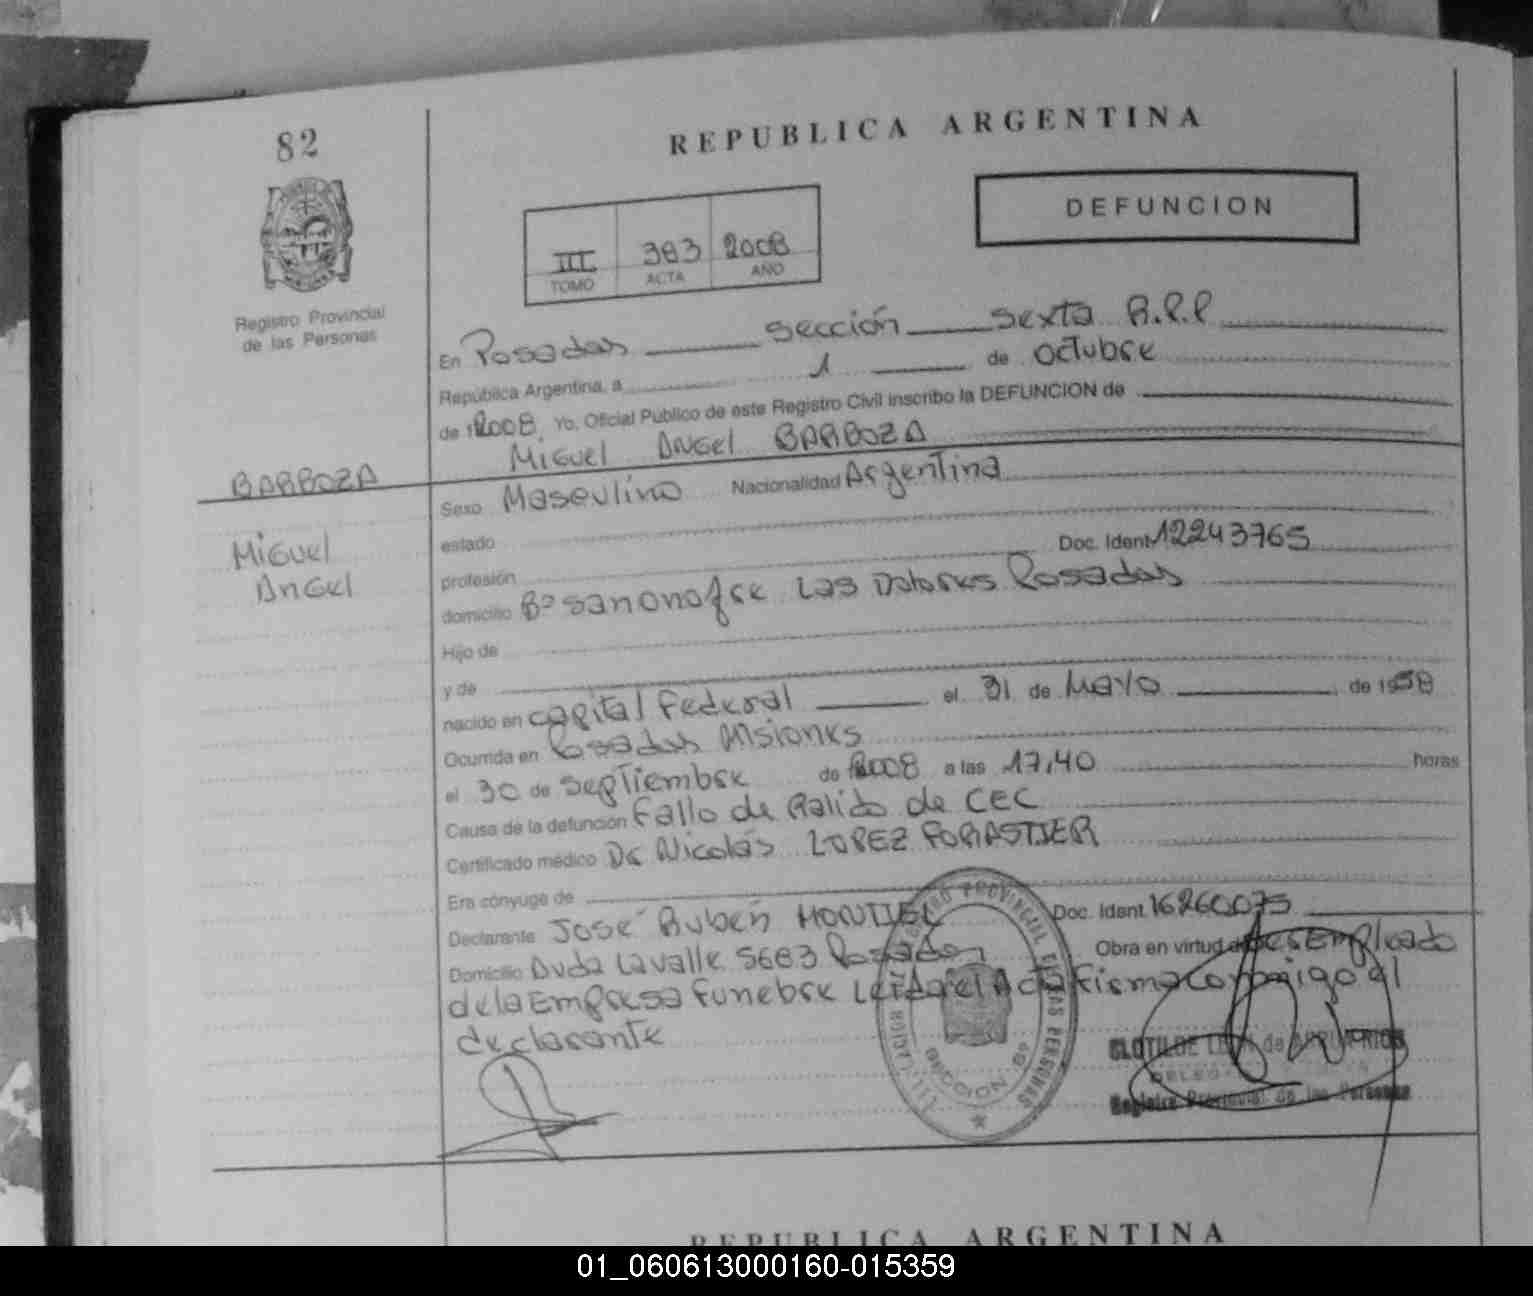 82
REPUBLICA ARGENTINA
DEFUNCION
III 383 2008
TOMO ACTA AÑO
Registro Provincial
de las Personas
En Posadas sección sexta R.P.P
República Argentina, a 1 de octubre
de 2008, Yo, Oficial Público de este Registro Civil inscribo la DEFUNCION de
Miguel Angel BARBOZA
BARBOZA
Miguel
Angel
Sexo Masculino Nacionalidad Argentina
estado
profesión Doc. Ident. 12243765
domicilio Bº San onofre Las Dolores Posadas
Hijo de
y de
nacido en capital Federal el 31 de Mayo de 1958
Ocurrida en Posadas Misiones
el 30 de septiembre de 2008 a las 17,40 horas
Causa de la defunción Fallo de Ralido de CEC
Certificado médico Dr Nicolás LOPEZ FORASTIER
Era cónyuge de
Declarante José Ruben MONTIEL Doc. Ident. 16260075
Domicilio Avda Lavalle 5683 Posadas Obra en virtud de ser Empleado
de la Empresa Funebre Leida el Acta Firma conmigo el
declarante
REGISTRO PROVINCIAL DE LAS PERSONAS
SECCION 6ª
CLOTILDE
Registro Provincial de las Personas
REPUBLICA ARGENTINA
01_060613000160-015359